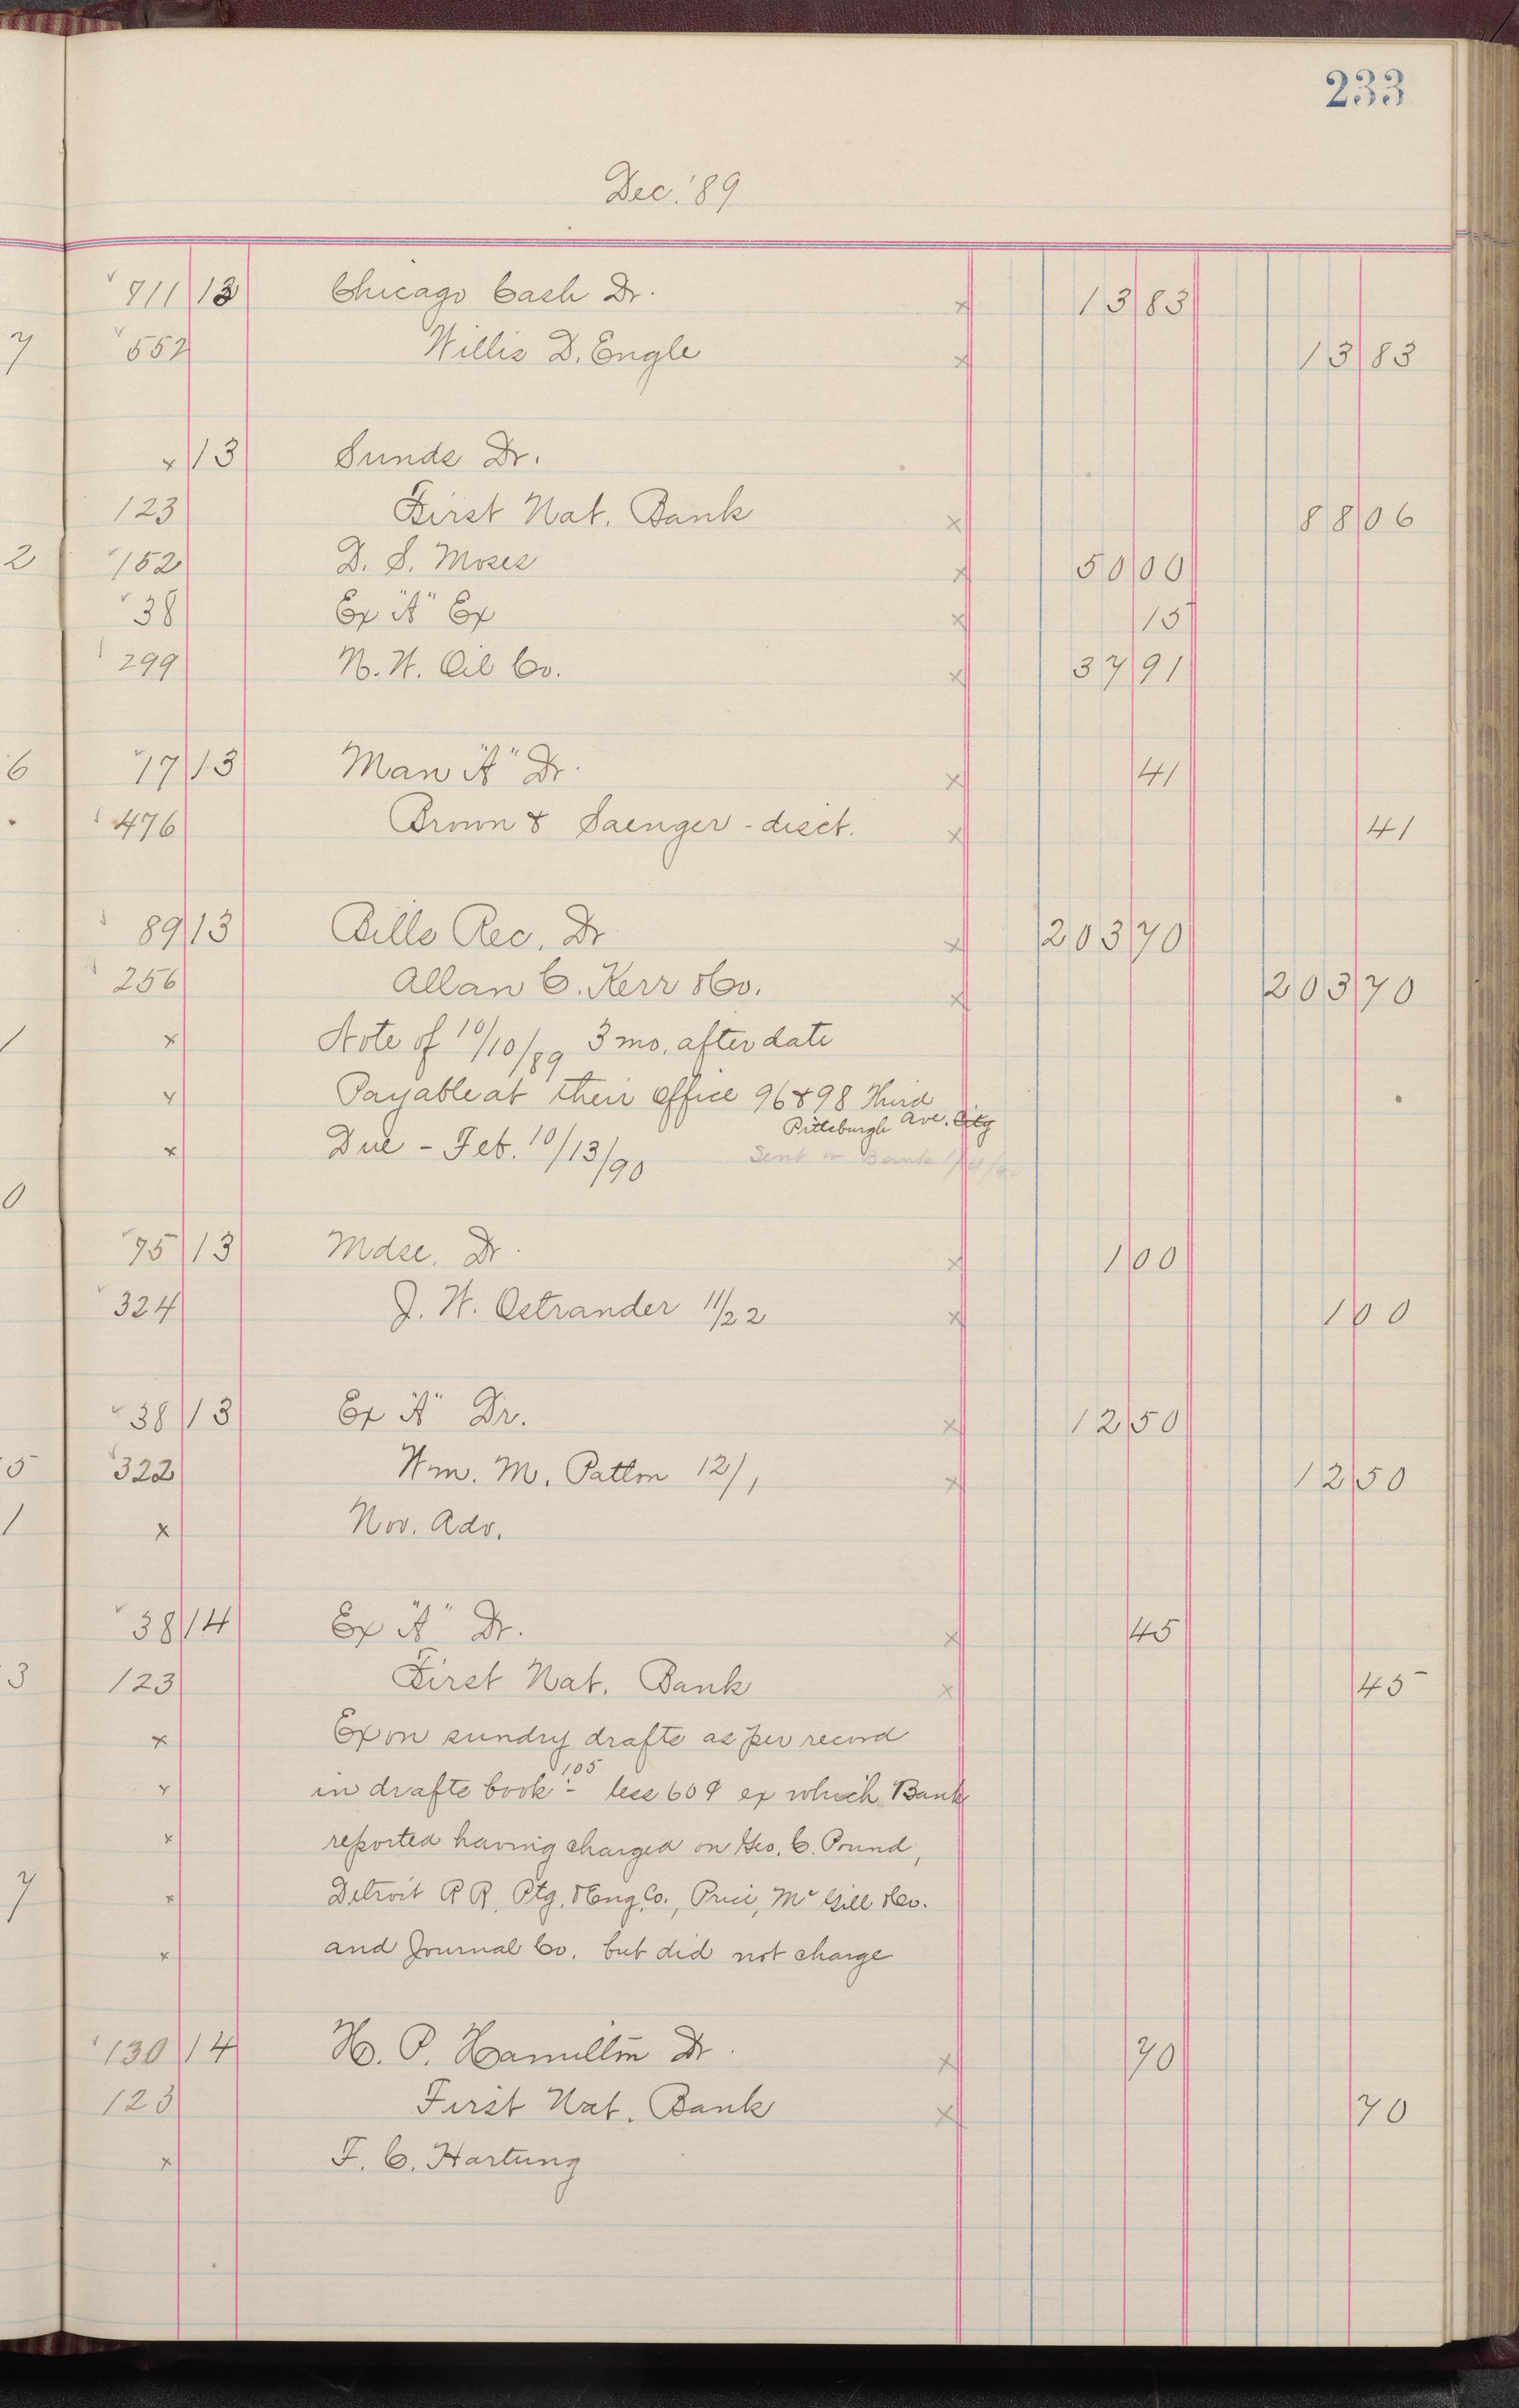 233
Dec. '89
711 13 Chicago Cash Dr. x 13 83
552 Willis D. Engle x 13 83
x 13 Sunds Dr.
123 First Nat. Bank x 88 06
152 D. S. Moses x 50 00
38 Ex "A" Ex x 15
299 N. W. Oil Co. x 37 91
17 13 Man "A" Dr. x 41
476 Brown & Saenger - disct. x 41
89 13 Bills Rec. Dr x 203 70
256 Allan C. Kerr & Co. x 203 70
x Note of 10/10/89 3 mo. after date
x Payable at their office 96 & 98 Third
Pittsburgh Ave. City
x Due - Feb. 10/13/90
Sent to Bank
75 13 Mdse. Dr. x 1 00
324 J. W. Ostrander 11/22 x 1 00
38 13 Ex "A" Dr. x 12 50
322 Wm. M. Patton 12/1 x 12 50
x Nov. Adv.
38 14 Ex "A" Dr. x 45
123 First Nat. Bank x 45
x Ex on sundry drafts as per record
105
x in drafts book :- less 60¢ ex which Bank
x reported having charged on Geo. C. Pound,
x Detroit R R. Ptg. & Eng. Co., Price, McGill & Co.
x and Journal Co. but did not charge
130 14 H. P. Hamilton Dr. x 70
123 First Nat. Bank x 70
x F. C. Hartung